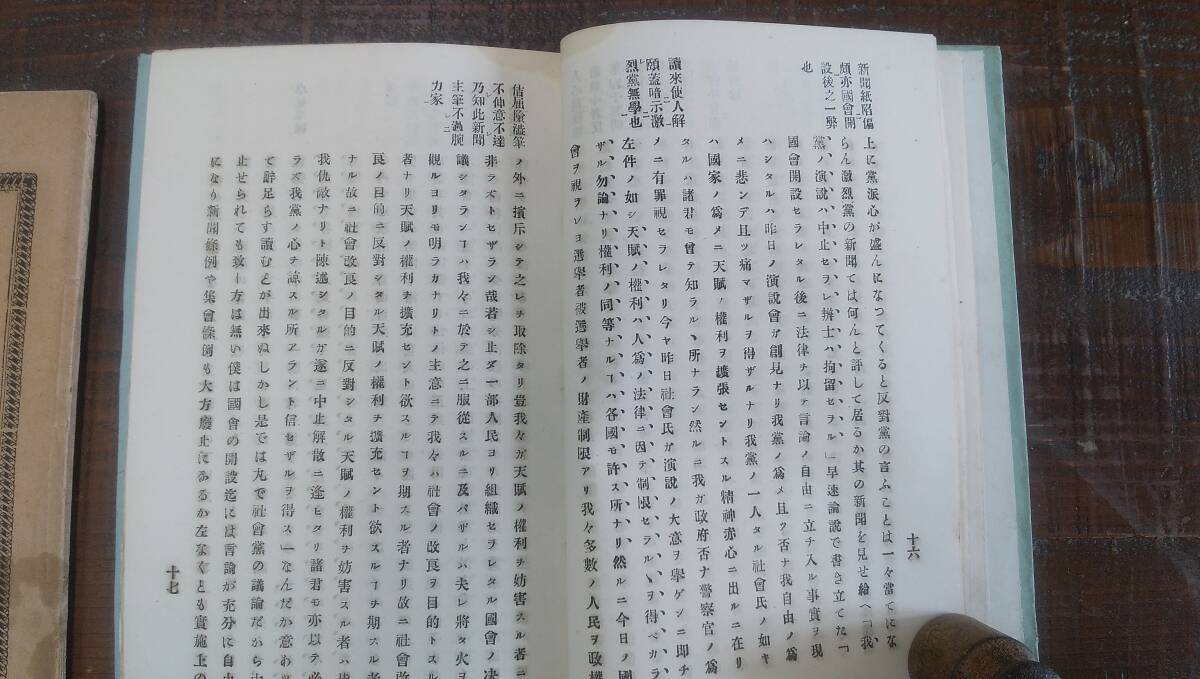 新聞紙陷偏
頗亦國會開
設後之一弊
也
讀來使人解
頤蓋暗示激
烈黨無學也
十六
上に黨派心が盛んになつてくると反對黨の言ふことは一々當てにな
らん激烈黨の新聞では何んと評して居るか其の新聞を見せ給へ「我
黨ノ演說ハ中止セヲレ辨士ハ拘留セヲル」早速論說で書き立てた「
國會開設セラレタル後ニ法律ヲ以テ言論ノ自由ニ立チ入ル事實ヲ現
ハシタルハ昨日ノ演說會ガ創見ナリ我黨ノ爲メ且ツ否ナ我自由ノ爲
メニ悲シデ且ツ痛マザルヲ得ザルナリ我黨ノ一人タル社會氏ノ如キ
ハ國家ノ爲メニ天賦ノ權利ヲ擴張セントスル精神赤心ニ出ルニ在リ
タルハ諸君モ曾テ知ラルヽ所ナラン然ルニ我ガ政府否ナ警察官ノ爲
メニ有罪視セラレタリ今ヤ昨日社會氏ガ演說ノ大意ヲ擧ゲンニ即チ
左件ノ如シ天賦ノ權利ハ人爲ノ法律ニ因テ制限セラルヽヲ得ベカラ
ザル勿論ナリ權利ノ同等ナルヿハ各國モ許ス所ナリ然ルニ今日ノ國
會ヲ視ヲレヨ選擧者被選擧者ノ財産制限アリ我々多數ノ人民ヲ政權
佶屈隂澁筆
不伸意不達
乃知此新聞
主筆不過腕
力家
ノ外ニ擯斥シテ之レヲ取除タリ豈我々ガ天賦ノ權利ヲ妨害スル者ニ
非ラズトセザランヤ哉若シ止ダ一部人民ヨリ組織セヲレタル國會ノ决
議シタランヿハ我々ニ於テ之ニ服從スルニ及バザルハ夫レ將タ火ヲ
觀ルヨリモ明ラカナリトノ主意ニテ我々ハ社會ノ改良ヲ目的トスル
者ナリ天賦ノ權利ヲ擴充セント欲スルヿヲ期スル者ナリ故ニ社會改
良ノ目的ニ反對シタル天賦ノ權利ヲ擴充セント欲スルヿヲ期スル者
ナル故ニ社會改良ノ目的ニ反對シタル天賦ノ權利ヲ妨害スル者ハ
我仇敵ナリト陳述シタルガ遂ニ中止解散ニ逢ヒタリ諸君モ亦以テ必
ラズ我黨ノ心ヲ諒スル所アラント信セザルヲ得ス」なんだか意あり
て辭足らず讀むとが出來ぬしかし是では丸で社會黨の議論だから中
止せられても致し方は無い僕は國會の開設迄には言論が充分に自由
になり新聞條例や集會條例も大方廢止にあるか左なくとも實施上の
十七